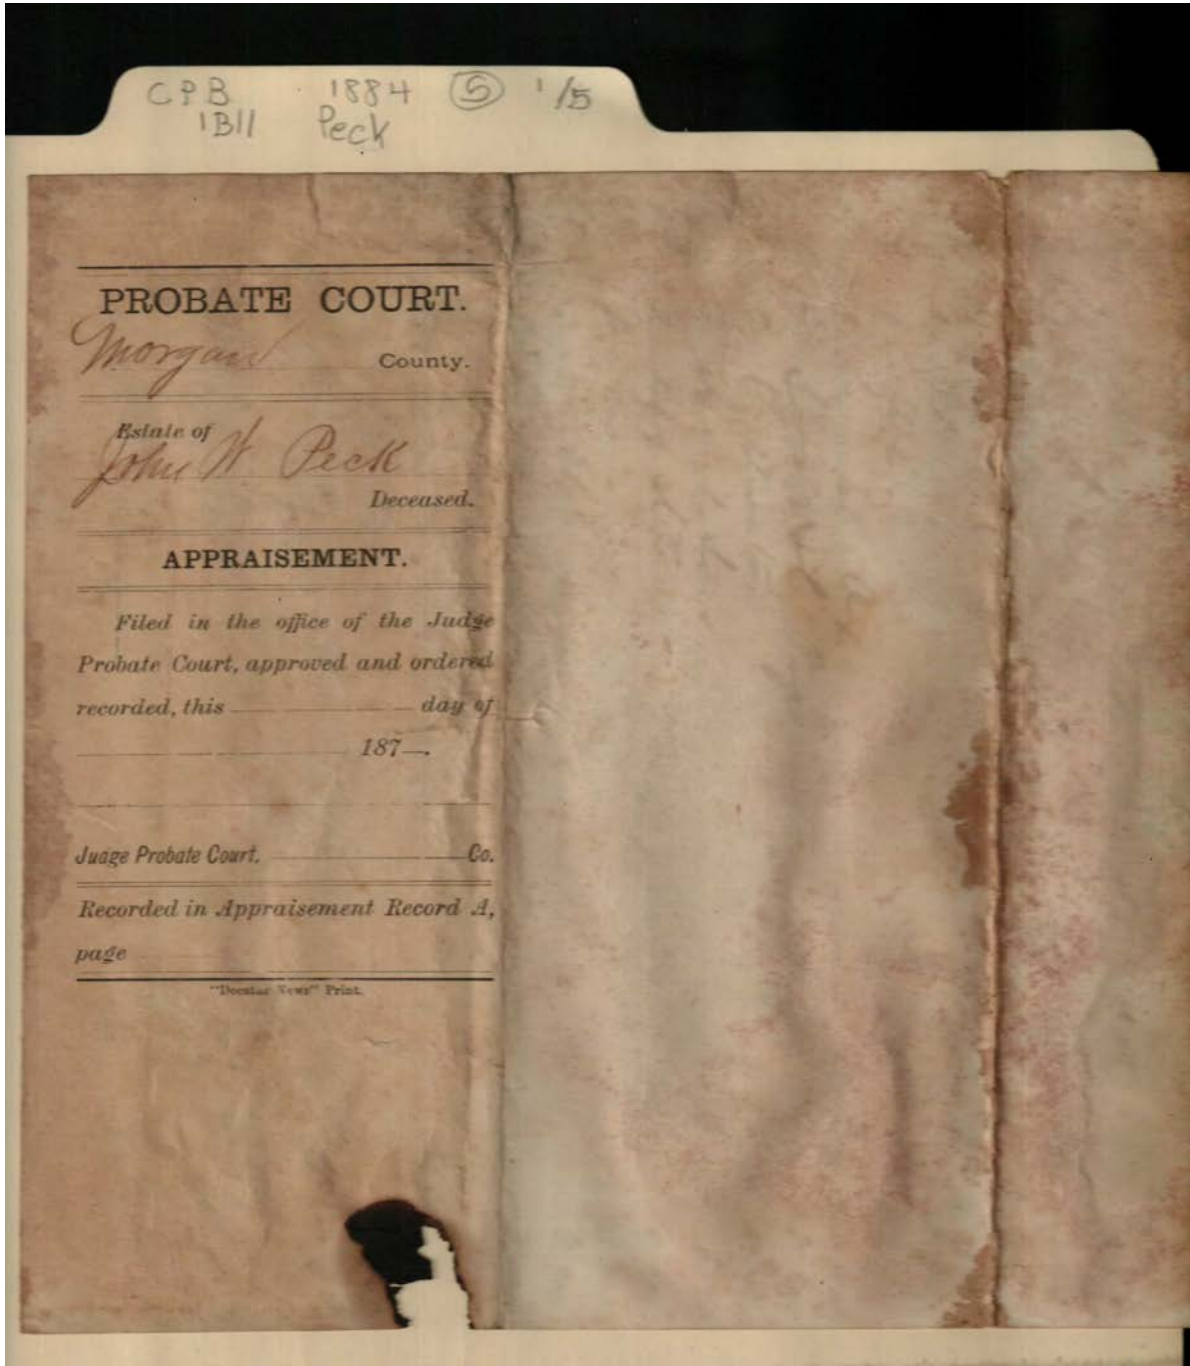 CPB 1884 (5) 1/5
1B11 Peck
PROBATE COURT.
Morgan County.
Estate of
John W. Peck
Deceased.
APPRAISEMENT.
Filed in the office of the Judge
Probate Court, approved and ordered
recorded, this day of
187 .
Judge Probate Court. Co.
Recorded in Appraisement Record A,
page
News" Print.